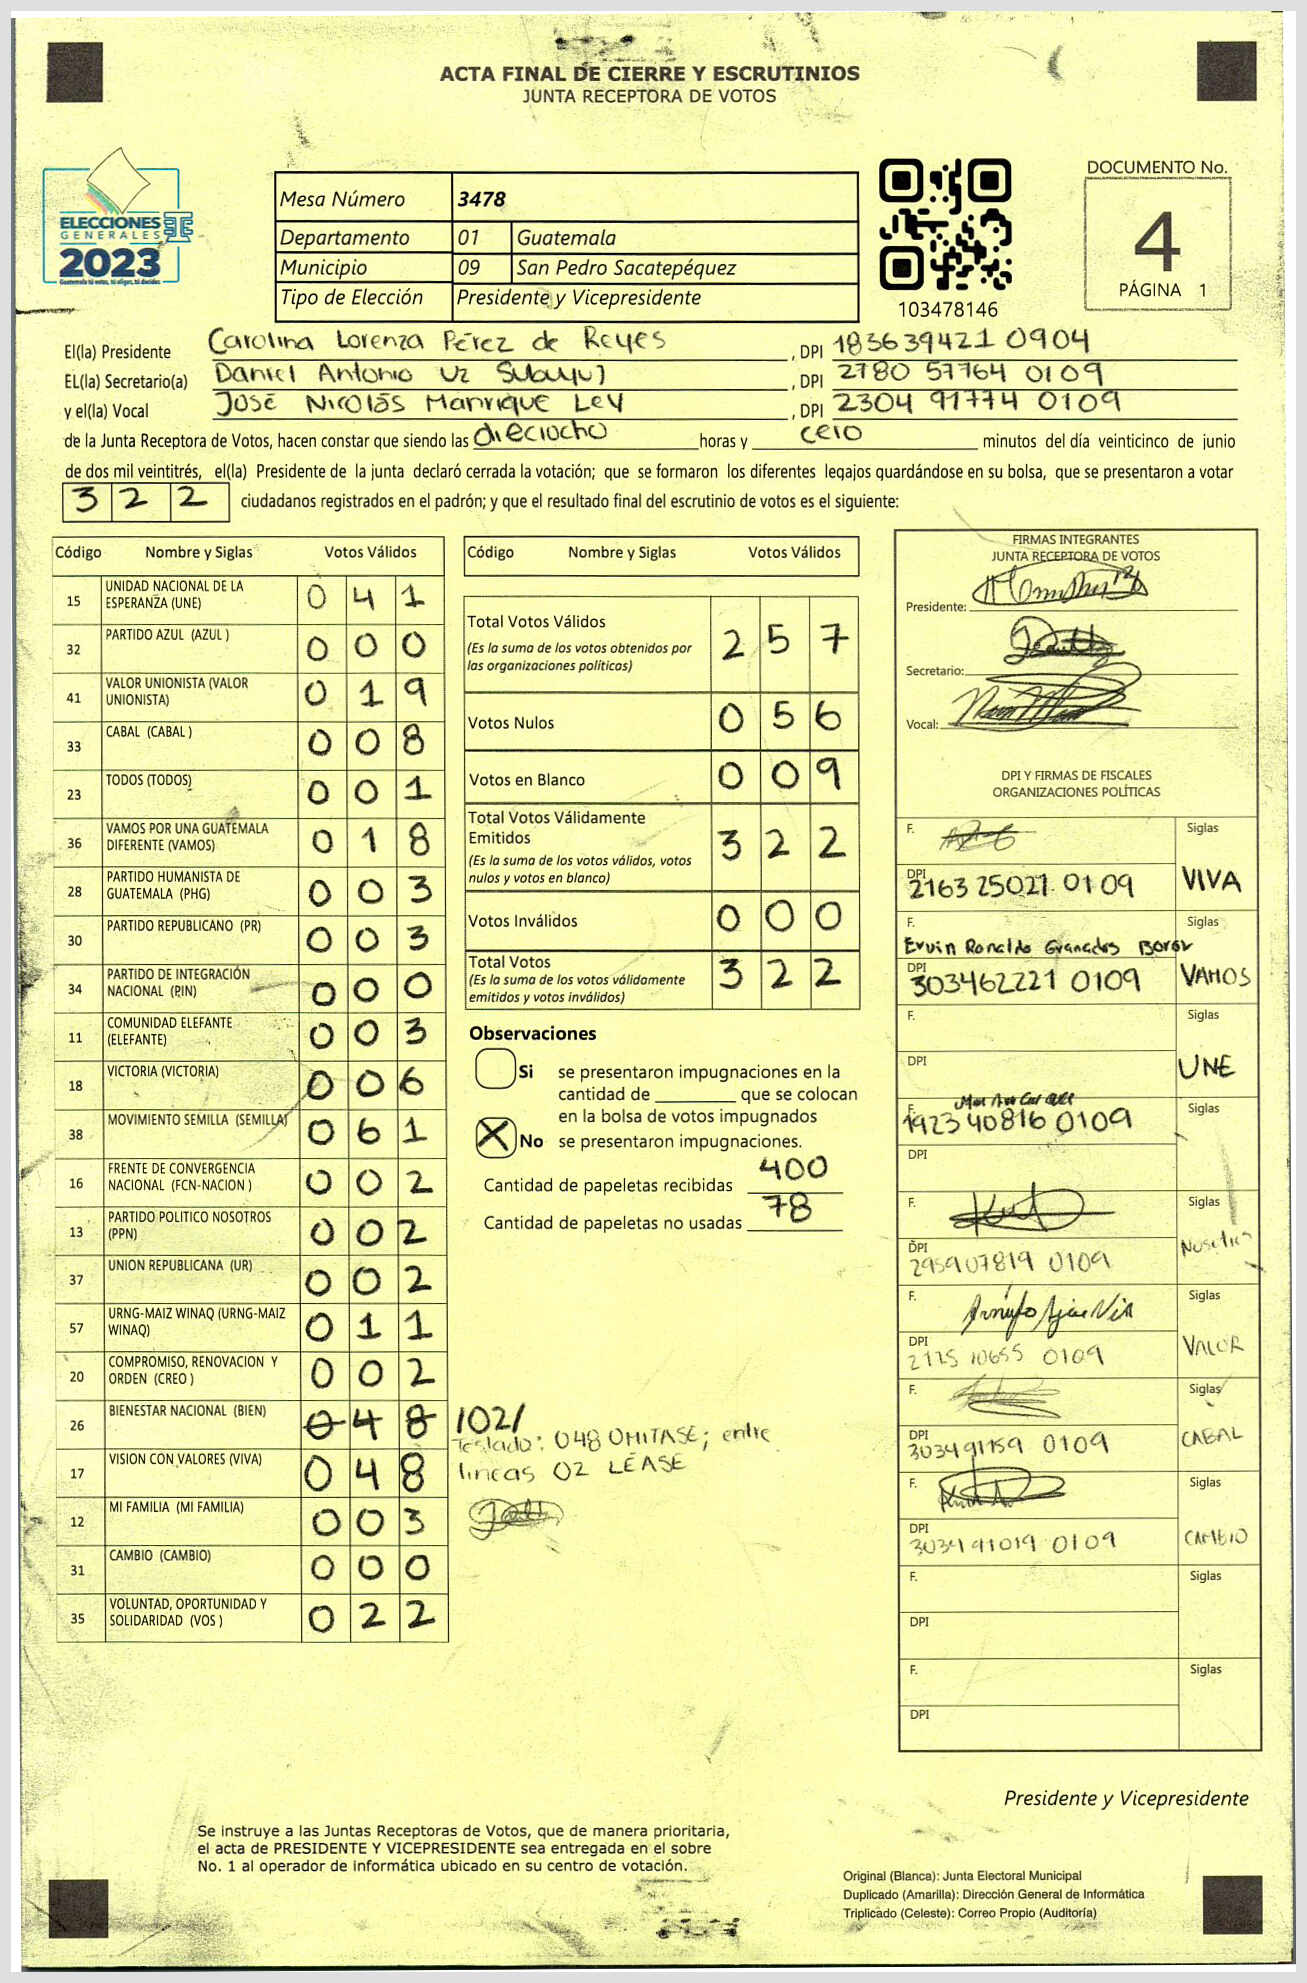 ACTA FINAL DE CIERRE Y ESCRUTINIOS
JUNTA RECEPTORA DE VOTOS
ELECCIONES
GENERALES
2023
Guatemala tú votas, tú eliges, tú decides
Mesa Número 3478
Departamento 01 Guatemala
Municipio 09 San Pedro Sacatepéquez
Tipo de Elección Presidente y Vicepresidente
103478146
DOCUMENTO No.
4
PÁGINA 1
El(la) Presidente Carolina Lorenza Pérez de Reyes, DPI 183639421 0904
EL(la) Secretario(a) Daniel Antonio Uz Subuyuj, DPI 2780 57764 0109
y el(la) Vocal José Nicolás Manrique Ley, DPI 2304 91774 0109
de la Junta Receptora de Votos, hacen constar que siendo las dieciocho horas y cero minutos del día veinticinco de junio
de dos mil veintitrés, el(la) Presidente de la junta declaró cerrada la votación; que se formaron los diferentes legajos guardándose en su bolsa, que se presentaron a votar
3 2 2 ciudadanos registrados en el padrón; y que el resultado final del escrutinio de votos es el siguiente:
Código Nombre y Siglas Votos Válidos
15 UNIDAD NACIONAL DE LA ESPERANZA (UNE) 0 4 1
32 PARTIDO AZUL (AZUL ) 0 0 0
41 VALOR UNIONISTA (VALOR UNIONISTA) 0 1 9
33 CABAL (CABAL ) 0 0 8
23 TODOS (TODOS) 0 0 1
36 VAMOS POR UNA GUATEMALA DIFERENTE (VAMOS) 0 1 8
28 PARTIDO HUMANISTA DE GUATEMALA (PHG) 0 0 3
30 PARTIDO REPUBLICANO (PR) 0 0 3
34 PARTIDO DE INTEGRACIÓN NACIONAL (PIN) 0 0 0
11 COMUNIDAD ELEFANTE (ELEFANTE) 0 0 3
18 VICTORIA (VICTORIA) 0 0 6
38 MOVIMIENTO SEMILLA (SEMILLA) 0 6 1
16 FRENTE DE CONVERGENCIA NACIONAL (FCN-NACION ) 0 0 2
13 PARTIDO POLITICO NOSOTROS (PPN) 0 0 2
37 UNION REPUBLICANA (UR) 0 0 2
57 URNG-MAIZ WINAQ (URNG-MAIZ WINAQ) 0 1 1
20 COMPROMISO, RENOVACION Y ORDEN (CREO ) 0 0 2
26 BIENESTAR NACIONAL (BIEN) 0 4 8 /02/
17 VISION CON VALORES (VIVA) 0 4 8
12 MI FAMILIA (MI FAMILIA) 0 0 3
31 CAMBIO (CAMBIO) 0 0 0
35 VOLUNTAD, OPORTUNIDAD Y SOLIDARIDAD (VOS ) 0 2 2
Testado: 048 OMITASE; entre
lineas 02 LÉASE
Código Nombre y Siglas Votos Válidos
Total Votos Válidos 2 5 7
(Es la suma de los votos obtenidos por
las organizaciones políticas)
Votos Nulos 0 5 6
Votos en Blanco 0 0 9
Total Votos Válidamente
Emitidos 3 2 2
(Es la suma de los votos válidos, votos
nulos y votos en blanco)
Votos Inválidos 0 0 0
Total Votos 3 2 2
(Es la suma de los votos válidamente
emitidos y votos inválidos)
Observaciones
Si se presentaron impugnaciones en la
cantidad de ________ que se colocan
en la bolsa de votos impugnados
X No se presentaron impugnaciones.
Cantidad de papeletas recibidas 400
Cantidad de papeletas no usadas 78
FIRMAS INTEGRANTES
JUNTA RECEPTORA DE VOTOS
Presidente:
Secretario:
Vocal:
DPI Y FIRMAS DE FISCALES
ORGANIZACIONES POLÍTICAS
F. Siglas
DPI 2163 25021 0109 VIVA
F. Siglas
Ervin Ronaldo Granados Boror
DPI 303462221 0109 VAMOS
F. Siglas
DPI UNE
F. Siglas
1923 40816 0109
DPI
F. Siglas
DPI 295907819 0109 Nosotros
F. Siglas
DPI 2175 10655 0109 VALOR
F. Siglas
DPI 303491159 0109 CABAL
F. Siglas
DPI 303491019 0109 CAMBIO
F. Siglas
DPI
F. Siglas
DPI
Presidente y Vicepresidente
Se instruye a las Juntas Receptoras de Votos, que de manera prioritaria,
el acta de PRESIDENTE Y VICEPRESIDENTE sea entregada en el sobre
No. 1 al operador de informática ubicado en su centro de votación.
Original (Blanca): Junta Electoral Municipal
Duplicado (Amarilla): Dirección General de Informática
Triplicado (Celeste): Correo Propio (Auditoría)